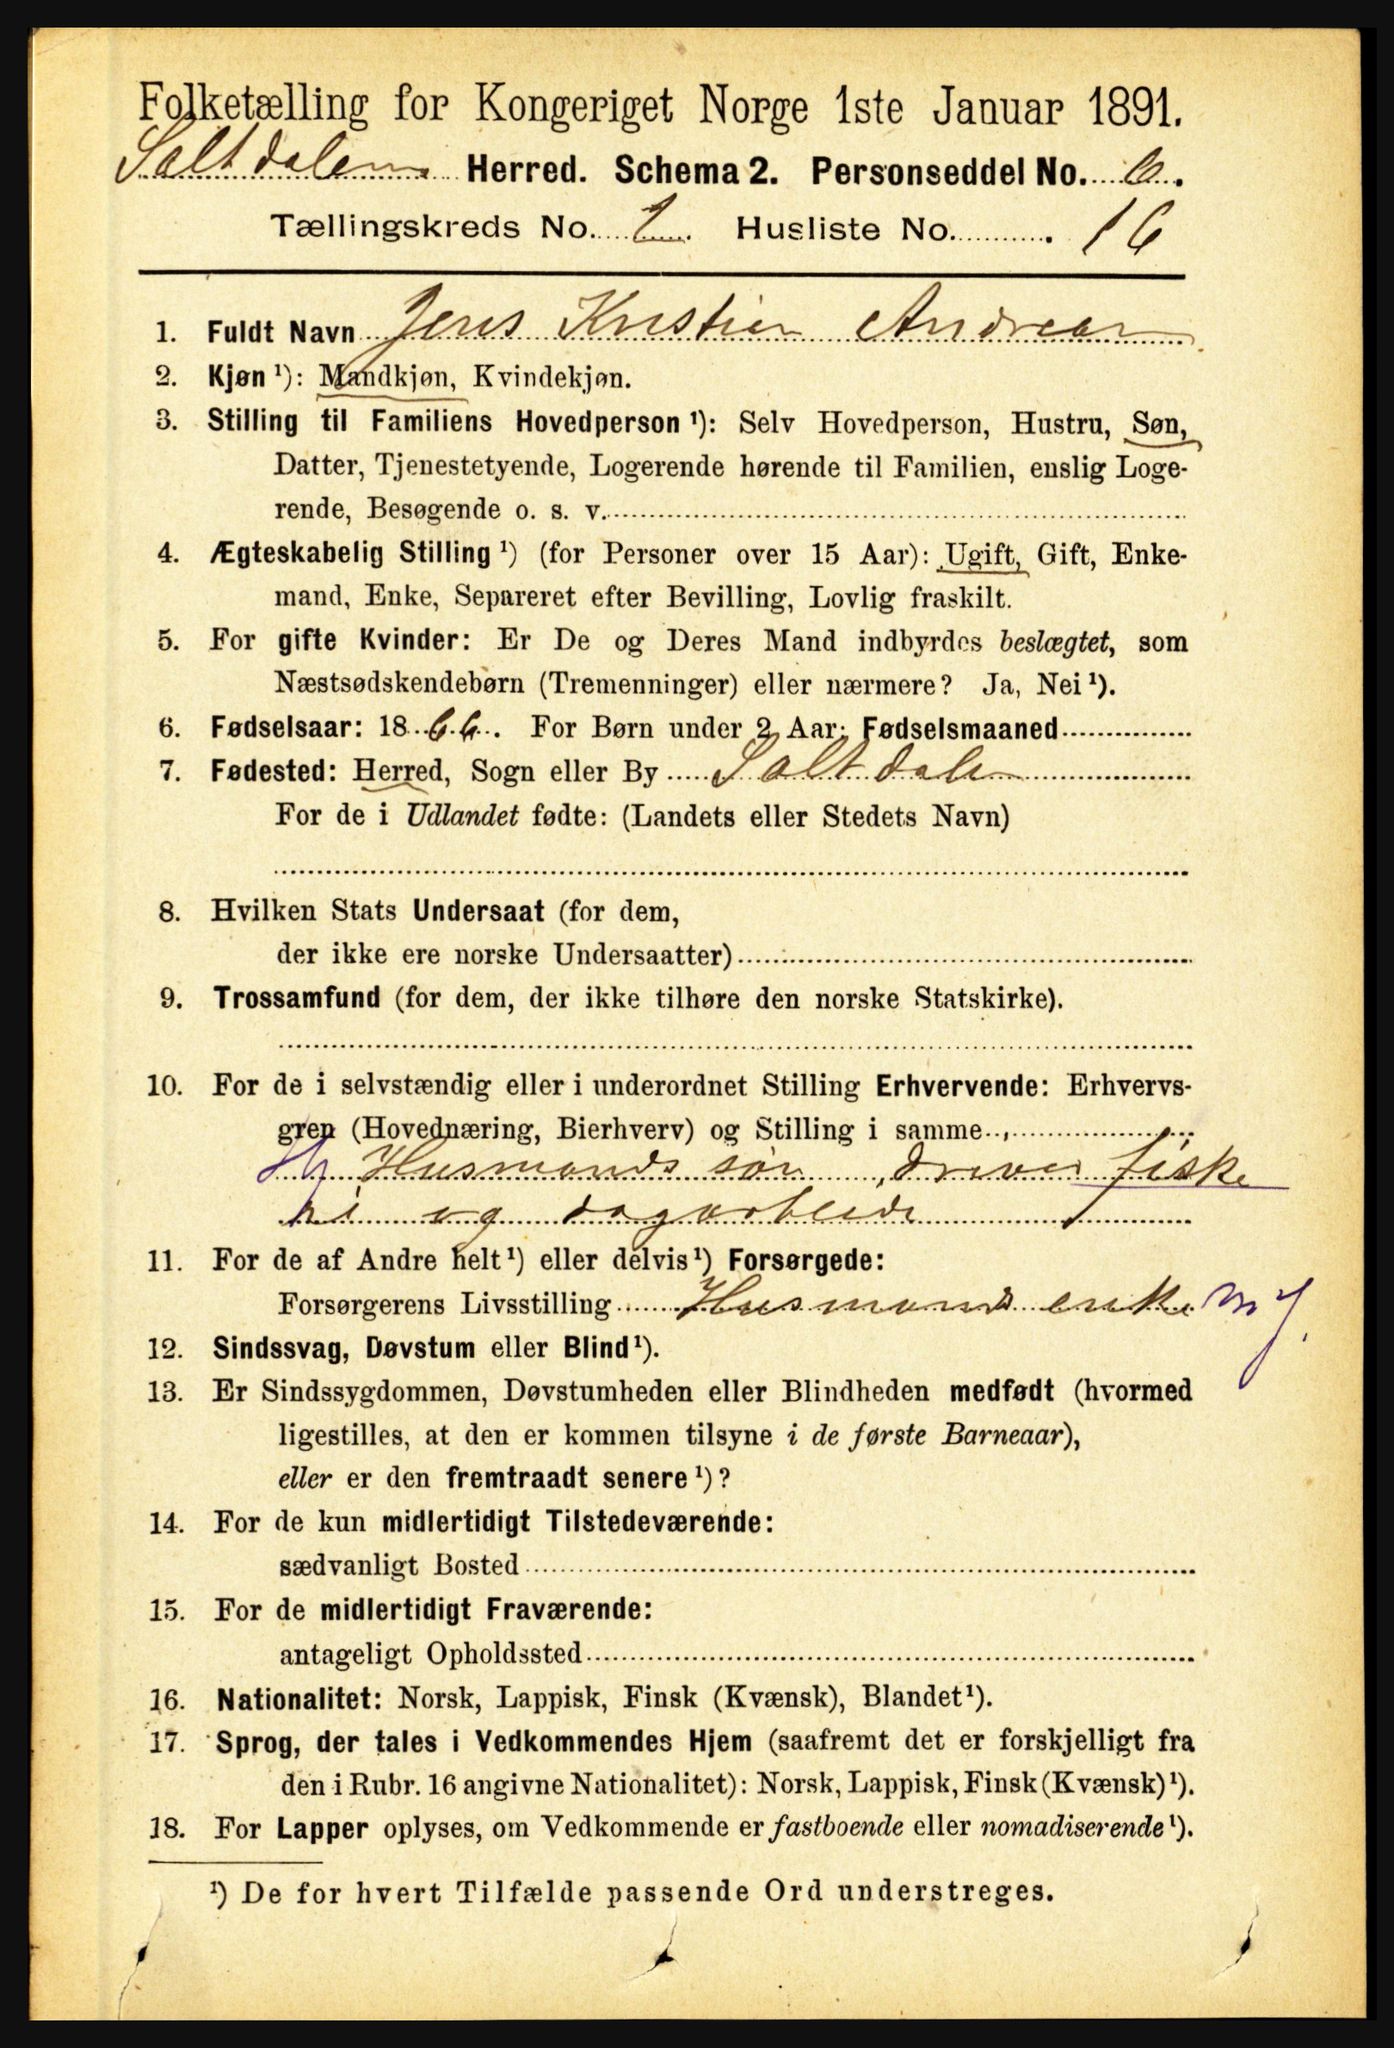 Folketælling for Kongeriget Norge 1ste Januar 1891.
Saltdalen Herred. Schema 2. Personseddel No. 6.
Tællingskreds No. 1. Husliste No. 16
1. Fuldt Navn Jens Kristian Andreas
2. Kjøn ¹): Mandkjøn, Kvindekjøn.
3. Stilling til Familiens Hovedperson ¹): Selv Hovedperson, Hustru, Søn,
Datter, Tjenestetyende, Logerende hørende til Familien, enslig Loge-
rende, Besøgende o. s. v.
4. Ægteskabelig Stilling ¹) (for Personer over 15 Aar): Ugift, Gift, Enke-
mand, Enke, Separeret efter Bevilling, Lovlig fraskilt.
5. For gifte Kvinder: Er De og Deres Mand indbyrdes beslægtet, som
Næstsødskendebørn (Tremenninger) eller nærmere? Ja, Nei ¹).
6. Fødselsaar: 1866. For Børn under 2 Aar: Fødselsmaaned
7. Fødested: Herred, Sogn eller By Saltdalen
For de i Udlandet fødte: (Landets eller Stedets Navn)
8. Hvilken Stats Undersaat (for dem,
der ikke ere norske Undersaatter)
9. Trossamfund (for dem, der ikke tilhøre den norske Statskirke).
10. For de i selvstændig eller i underordnet Stilling Erhvervende: Erhvervs-
gren (Hovednæring, Bierhverv) og Stilling i samme
Husmands søn, driver fiske
ri og dagarbeide
11. For de af Andre helt ¹) eller delvis ¹) Forsørgede:
Forsørgerens Livsstilling Husmands enke
12. Sindssvag, Døvstum eller Blind ¹).
13. Er Sindssygdommen, Døvstumheden eller Blindheden medfødt (hvormed
ligestilles, at den er kommen tilsyne i de første Barneaar),
eller er den fremtraadt senere ¹)?
14. For de kun midlertidigt Tilstedeværende:
sædvanligt Bosted
15. For de midlertidigt Fraværende:
antageligt Opholdssted
16. Nationalitet: Norsk, Lappisk, Finsk (Kvænsk), Blandet ¹).
17. Sprog, der tales i Vedkommendes Hjem (saafremt det er forskjelligt fra
den i Rubr. 16 angivne Nationalitet): Norsk, Lappisk, Finsk (Kvænsk) ¹).
18. For Lapper oplyses, om Vedkommende er fastboende eller nomadiserende ¹).
¹) De for hvert Tilfælde passende Ord understreges.